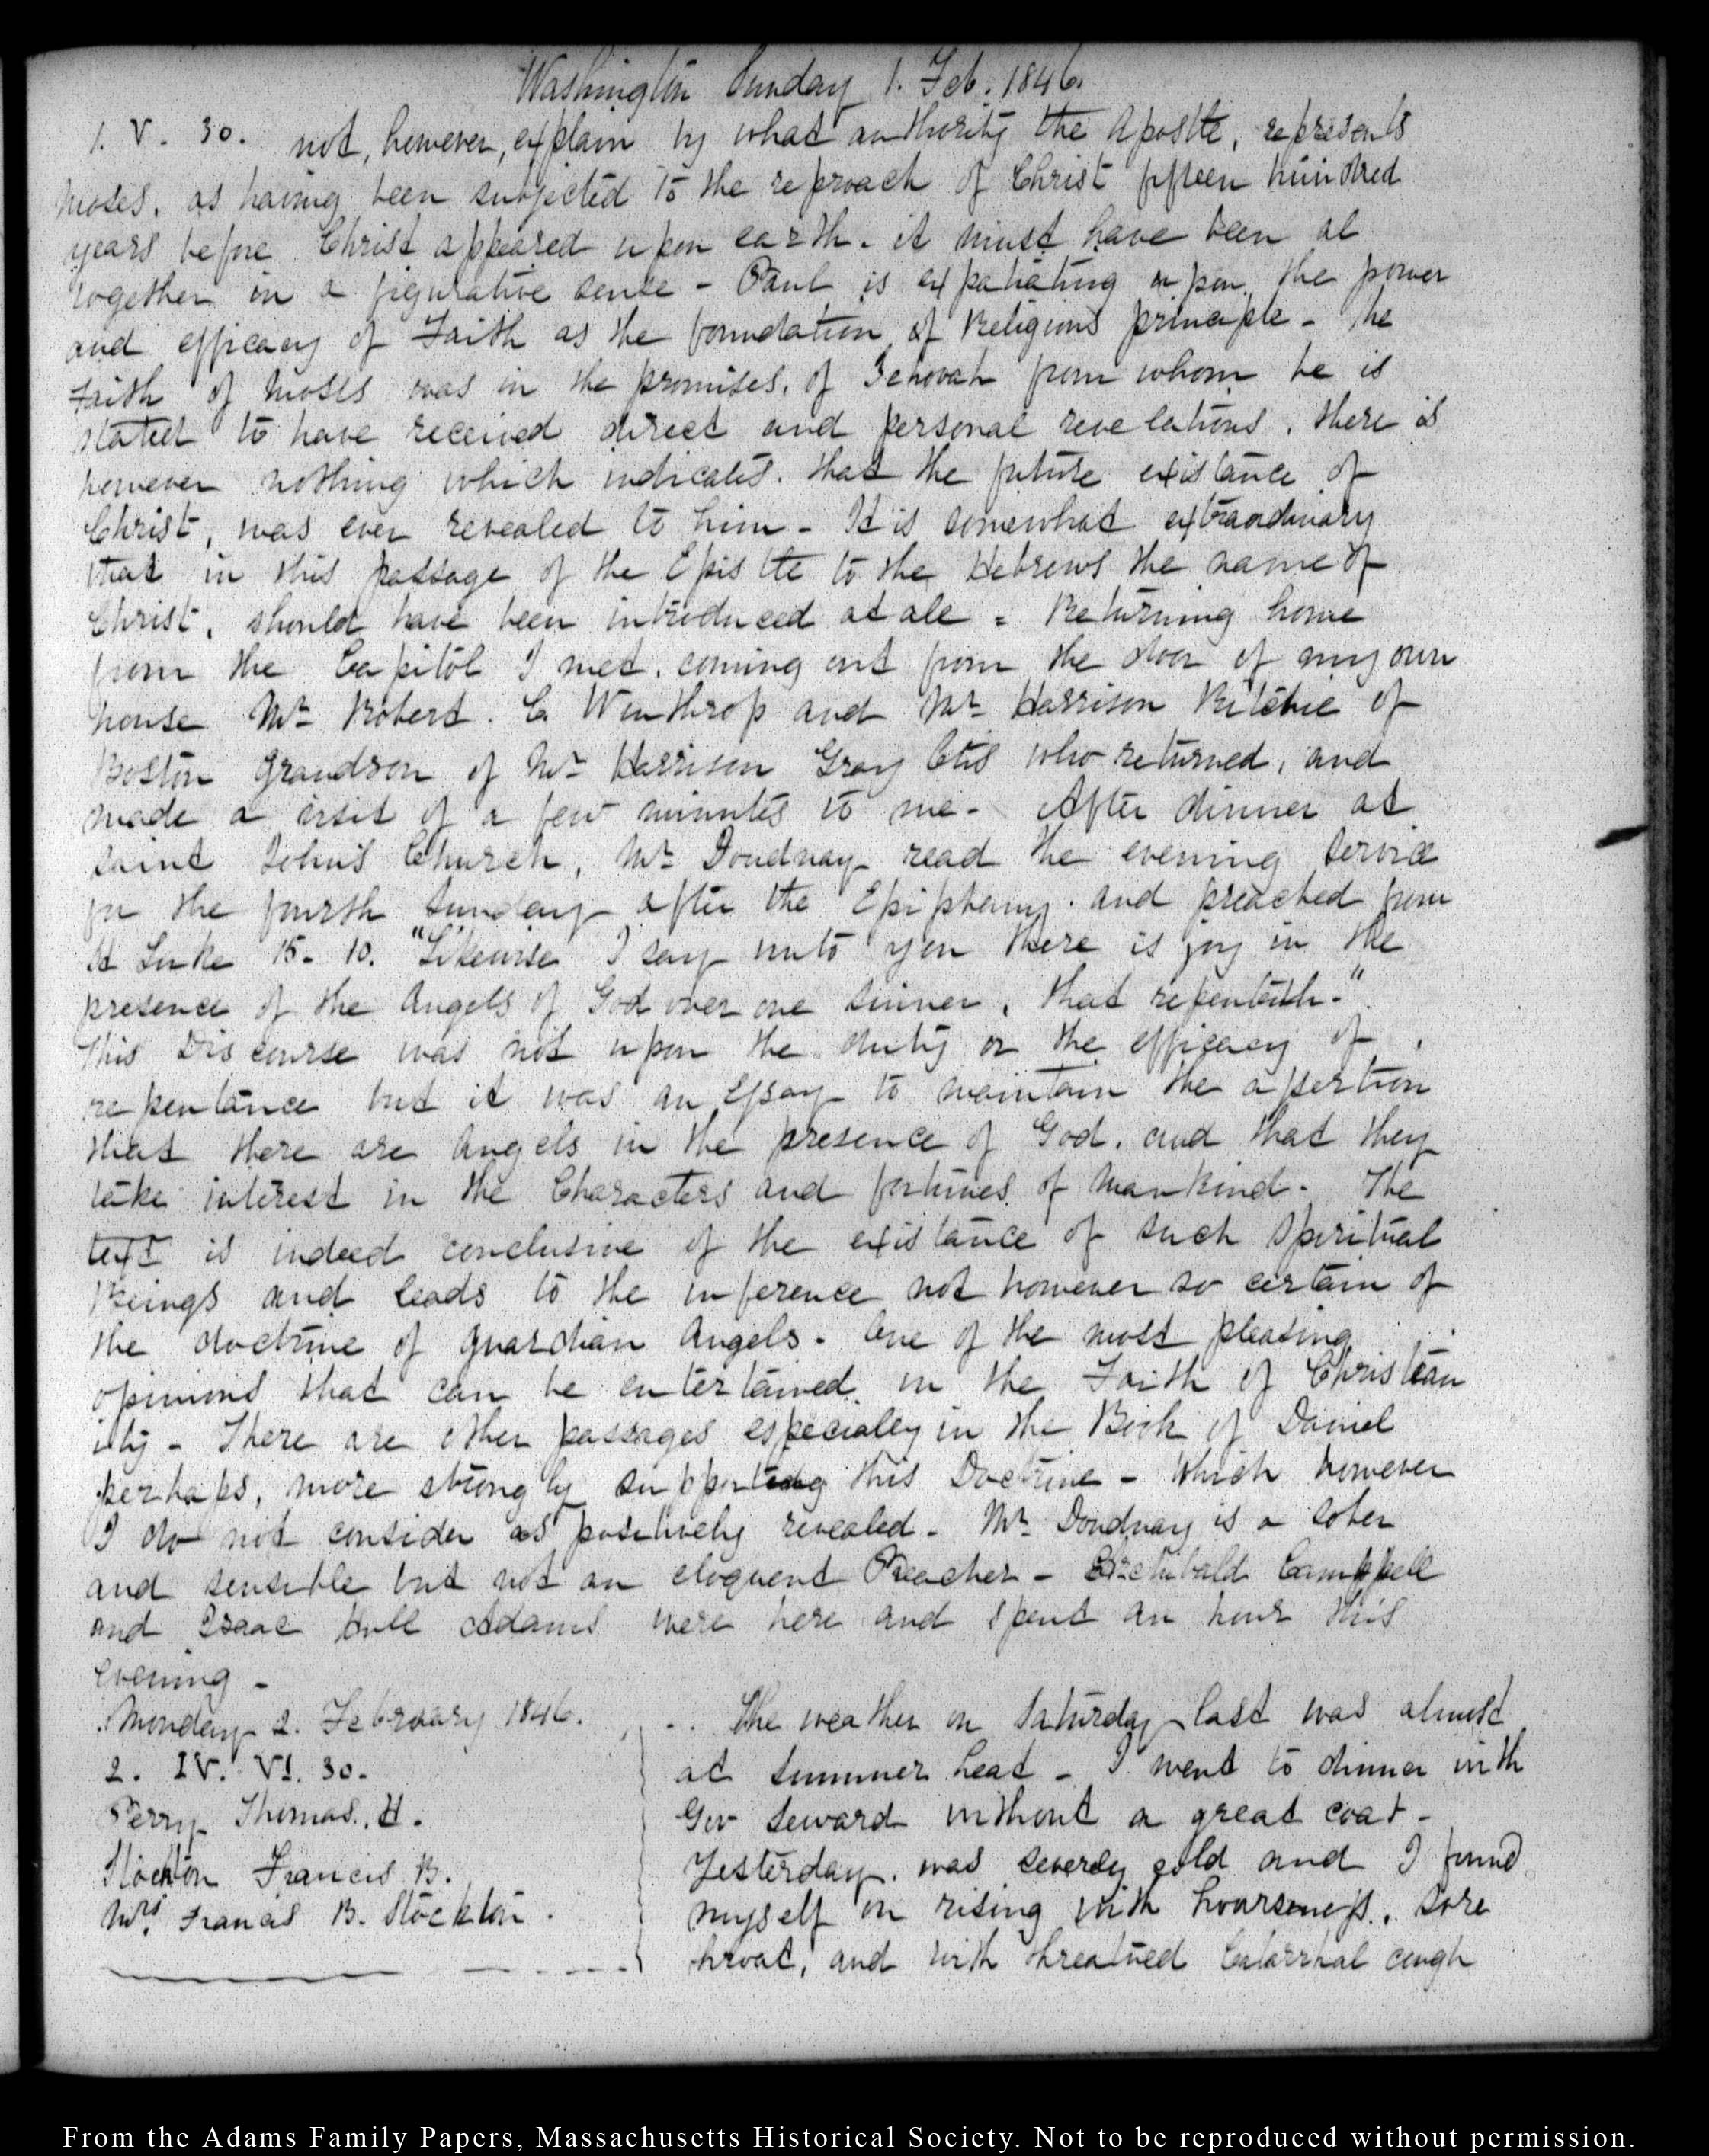 Washington Sunday 1. Feb. 1846.
1. V. 30. not, however, explain by what authority the Apostle, represents
Moses, as having been subjected to the reproach of Christ fifteen hundred
years before Christ appeared upon earth. it must have been al
together in a figurative sense - Paul is expatiating upon the power
and efficacy of Faith as the foundation of Religious principle - The
Faith of Moses was in the promises, of Jehovah from whom he is
stated to have received direct and personal revelations. there is
however nothing which indicates. that the future existance of
Christ, was ever revealed to him - It is somewhat extraordinary
that in this passage of the Epistle to the Hebrews the name of
Christ, should have been introduced at all = Returning home
from the Capitol I met, coming out from the door of my own
house Mr Robert. C. Winthrop and Mr Harrison Ritchie of
Boston grandson of Mr Harrison Gray Otis who returned, and
made a visit of a few minutes to me - After dinner at
Saint John's Church, Mr Doudnay read the evening service
for the fourth Sunday after the Epiphany. and preached from
St Luke 15. 10. "Likewise I say unto you there is joy in the
presence of the Angels of God over one sinner, that repenteth."
This Discourse was not upon the duty or the efficacy of
repentance but it was an Essay to maintain the assertion
that there are Angels in the presence of God. and that they
take interest in the Characters and fortunes of Mankind. The
text is indeed conclusive of the existance of such Spiritual
Beings and leads to the inference not however so certain of
the doctrine of guardian Angels. One of the most pleasing
opinions that can be entertained in the Faith of Christian
ity - There are other passages especially in the Book of Daniel
perhaps, more strongly supporting this Doctrine - Which however
I do not consider as positively revealed - Mr Doudnay is a sober
and sensible but not an eloquent Preacher - Archibald Campbell
and Isaac Hull Adams were here and spent an hour this
evening -
Monday 2. February 1846.
2. IV. VI. 30.
Perry Thomas. H.
Stockton Francis B.
Mrs Francis B. Stockton.
The weather on Saturday last was almost
at Summer heat - I went to dinner with
Gov Seward without a great coat -
Yesterday. was severely cold and I found
myself on rising with hoarseness, sore
throat, and with threatned Catarrhal cough
From the Adams Family Papers, Massachusetts Historical Society. Not to be reproduced without permission.